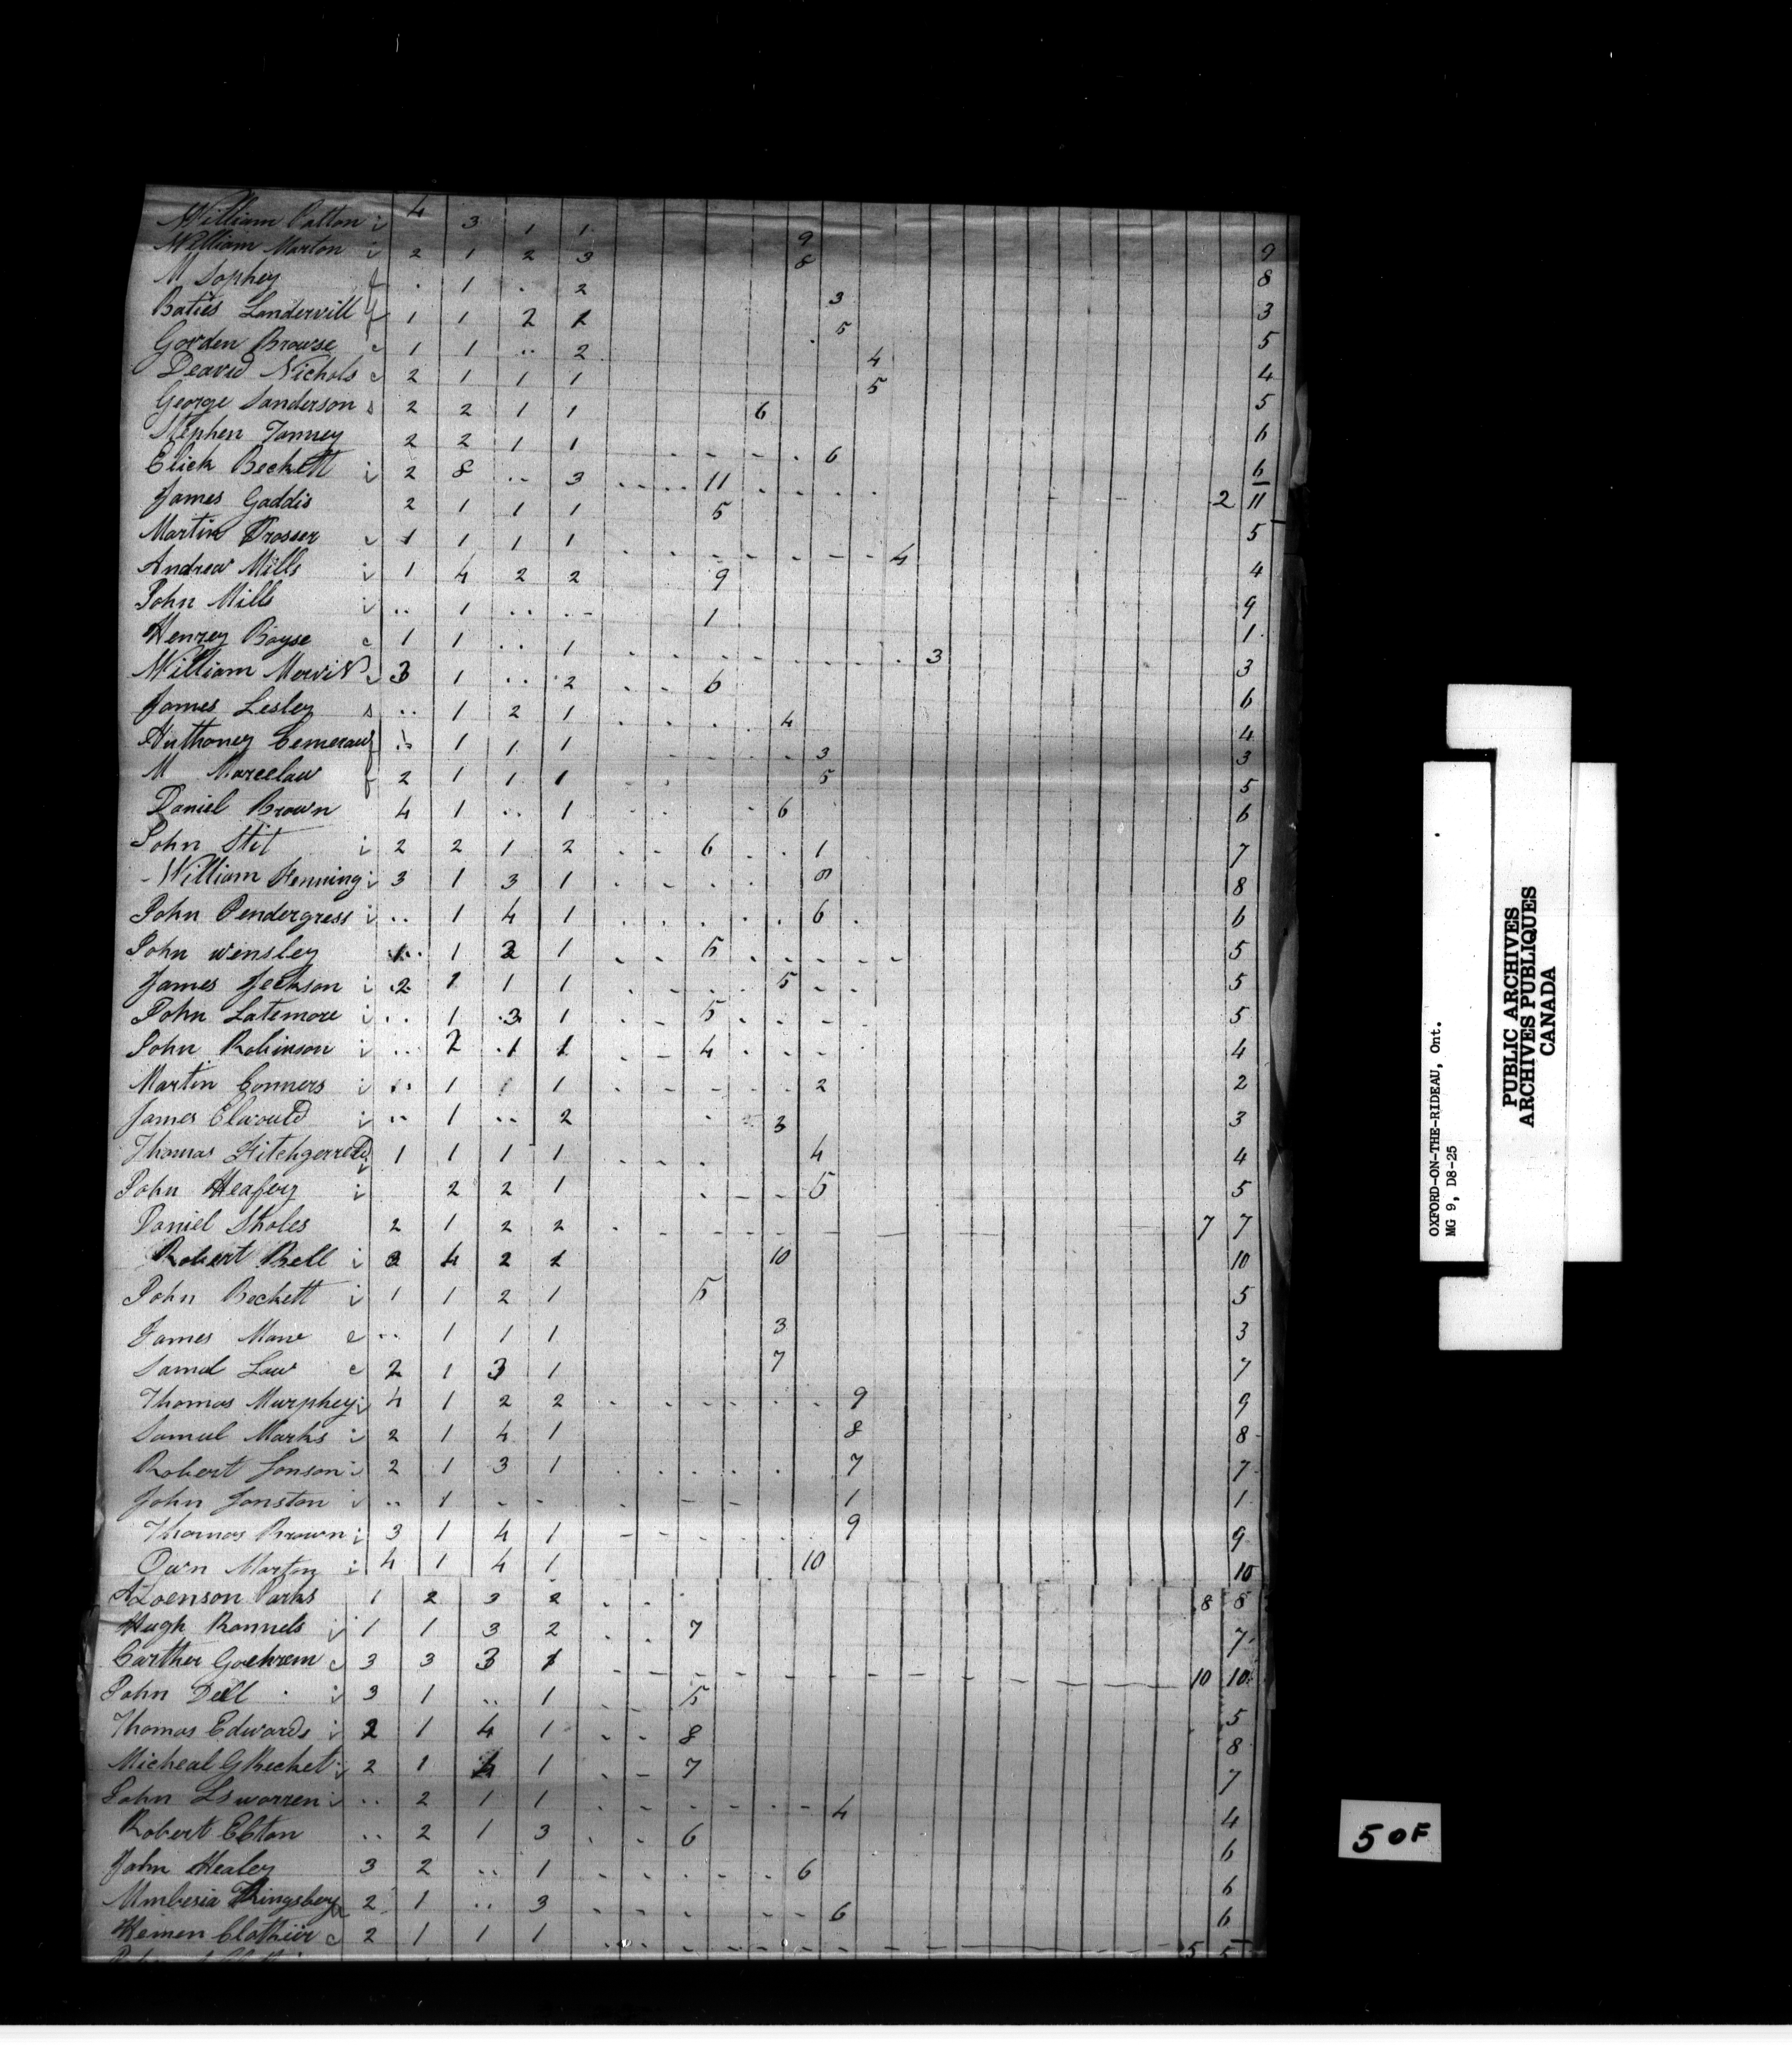 William Patton i 4 3 1 1 9 9
William Marton i 2 1 2 3 8 8
M Sophey f . 1 . 2 3 3
Baties Landervill f 1 1 2 1 5 5
Gorden Browse c 1 1 .. 2 4 4
Deavid Nichols c 2 1 1 1 5 5
George Sanderson s 2 2 1 1 6 6
Stephen Tanney 2 2 1 1 6 6
Elick Beckett i 2 8 .. 3 11 2 11
James Gaddis 2 1 1 1 5 5
Martin Prosser 1 1 1 1 4 4
Andrew Mills i 1 4 2 2 9 9
John Mills i .. 1 .. .. 1 1
Henrey Boyse c 1 1 .. 1 3 3
William 3 1 .. 2 6 6
James Lesley s .. 1 2 1 4 4
Anthoney f .. 1 1 1 3 3
M Marcelaw f 2 1 1 1 5 5
Daniel Brown 4 1 .. 1 6 6
John Stit i 2 2 1 2 6 1 7
William Henning i 3 1 3 1 8 8
John Pendergress i .. 1 4 1 6 6
John wensley 1 2 1 5 5
James Jeckson i 2 1 1 1 5 5
John Latemore i .. 1 3 1 5 5
John Robinson i .. 2 1 1 4 4
Martin Conners i .. 1 1 2 2
James Elwould i .. 1 .. 2 3 3
Thomas Fitchgerreld i 1 1 1 1 4 4
John Heafey i 2 2 1 5 5
Daniel Sholes 2 1 2 2 7 7
Robert Bell i 2 4 2 2 10 10
John Beckett i 1 1 2 1 5 5
James Maw c .. 1 1 1 3 3
Samul Law c 2 1 3 1 7 7
Thomas Murphey i 4 1 2 2 9 9
Samuel Marks i 2 1 4 1 8 8
Robert Jonson i 2 1 3 1 7 7
John Jonston i .. 1 - - 1 1
Thomas Brown i 3 1 4 1 9 9
Own Marton i 4 1 4 1 10 10
Parks 1 2 3 2 8 8
Hugh Rannels i 1 1 3 2 7 7
Carther Gochrem c 3 3 3 1 10 10
John Dell i 3 1 .. 1 5 5
Thomas Edwards i 2 1 4 1 8 8
Micheal G Becket i 2 1 4 1 7 7
John Lsworren i .. 2 1 1 4 4
Robert Elton .. 2 1 3 6 6
John Healey 3 2 .. 1 6 6
Kingsbery 2 1 .. 3 6 6
Hemen Clothier c 2 1 1 1 5 5
OXFORD-ON-THE-RIDEAU, Ont.
MG 9, D8-25
PUBLIC ARCHIVES
ARCHIVES PUBLIQUES
CANADA
5 OF